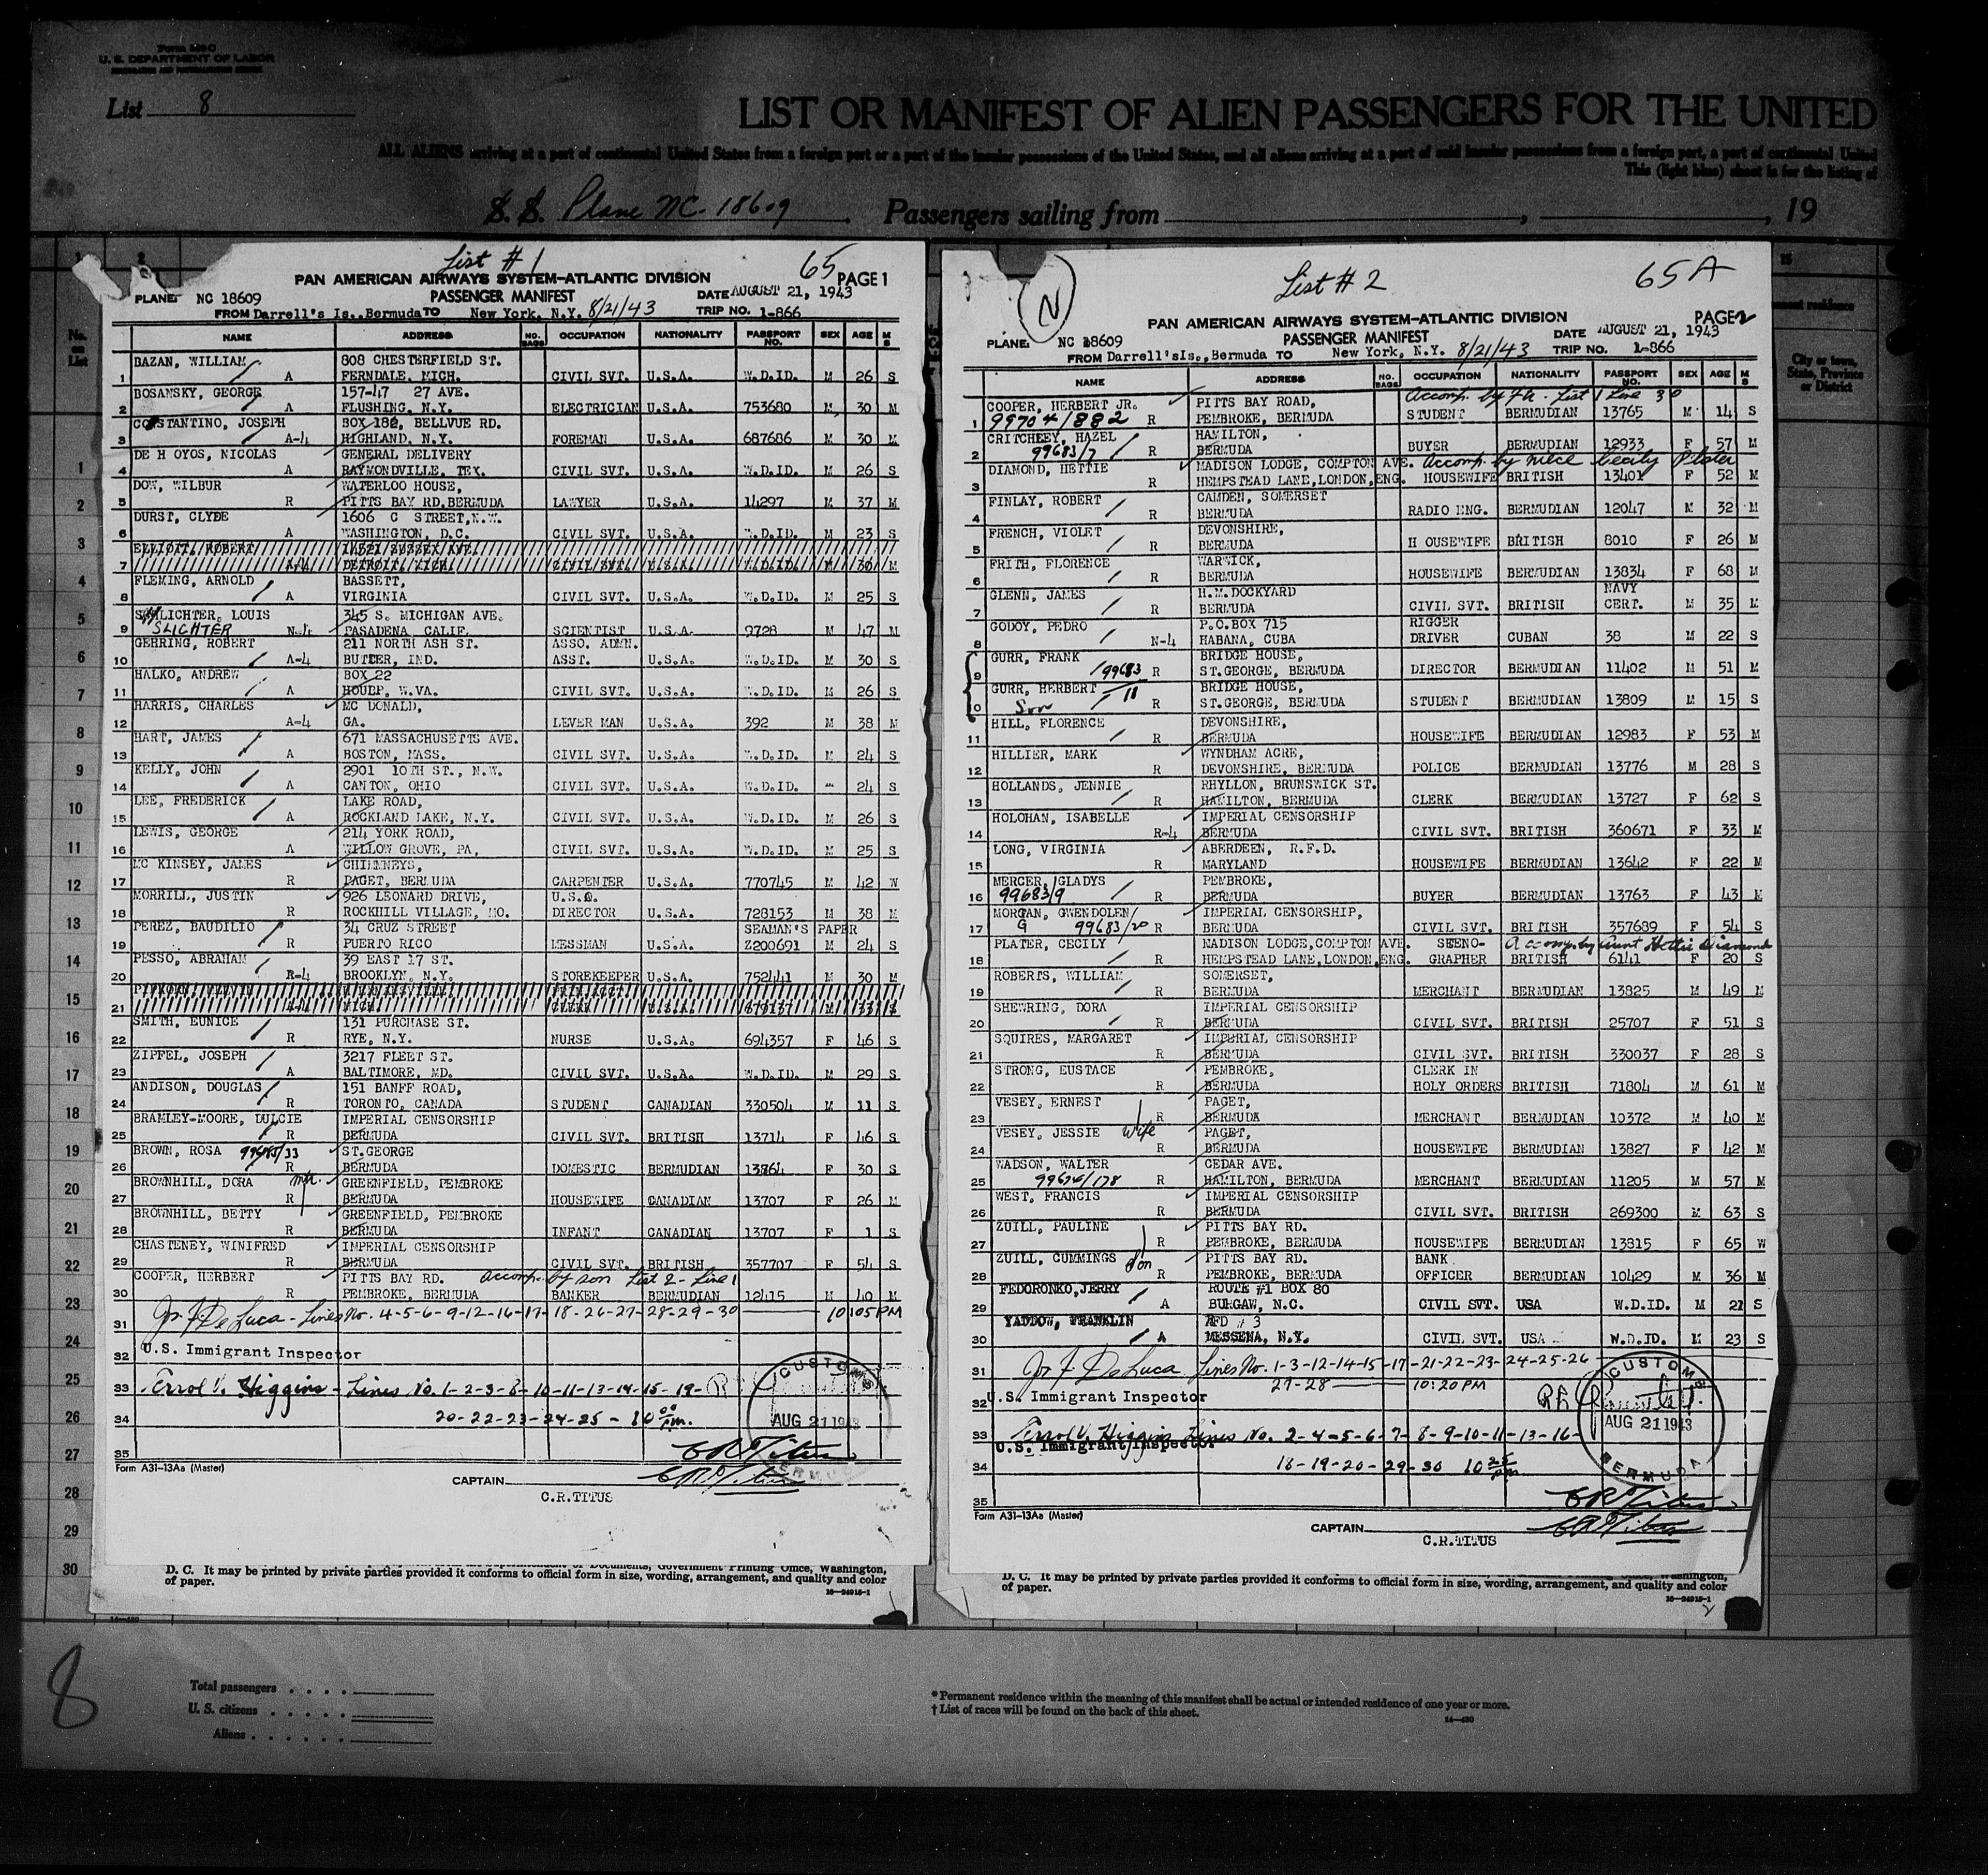 Form 630 C
U. S. DEPARTMENT OF LABOR
List 8
LIST OR MANIFEST OF ALIEN PASSENGERS FOR THE UNITED
ALL ALIENS arriving at a port of continental United States from a foreign port or a port of the insular possessions of the United States, and all aliens arriving at a port of said insular possessions from a foreign port, a port of continental United
This (light blue) sheet is for the listing of
S. S. Plane NC-18609 . Passengers sailing from , , 19
List #1 65
PAN AMERICAN AIRWAYS SYSTEM—ATLANTIC DIVISION PAGE 1
PLANE: NC 18609 PASSENGER MANIFEST DATE AUGUST 21, 1943
FROM Darrell's Is., Bermuda TO New York, N.Y. 8/21/43 TRIP NO. 1-866
NAME ADDRESS NO. BAGS OCCUPATION NATIONALITY PASSPORT NO. SEX AGE M S
BAZAN, WILLIAM 808 CHESTERFIELD ST.
1 A FERNDALE, MICH. CIVIL SVT. U.S.A. W.D.ID. M 26 S
BOSANSKY, GEORGE 157-47 27 AVE.
2 A FLUSHING, N.Y. ELECTRICIAN U.S.A. 753680 M 30 M
COSTANTINO, JOSEPH BOX 182, BELLVUE RD.
3 A-4 HIGHLAND, N.Y. FOREMAN U.S.A. 687686 M 30 M
DE H OYOS, NICOLAS GENERAL DELIVERY
4 A RAYMONDVILLE, TEX. CIVIL SVT. U.S.A. W.D.ID. M 26 S
DOW, WILBUR WATERLOO HOUSE,
5 R PITTS BAY RD, BERMUDA LAWYER U.S.A. 14297 M 37 M
DURST, CLYDE 1606 C STREET, N.W.
6 A WASHINGTON, D.C. CIVIL SVT. U.S.A. W.D.ID. M 23 S
ELLIOTT, ROBERT 14521 SUSSEX AVE.
7 A-4 DETROIT, MICH. CIVIL SVT. U.S.A. W.D.ID. M 30 M
FLEMING, ARNOLD BASSETT,
8 A VIRGINIA CIVIL SVT. U.S.A. W.D.ID. M 25 S
SCHLICHTER, LOUIS 345 S. MICHIGAN AVE.
9 SLICHTER N-4 PASADENA, CALIF. SCIENTIST U.S.A. 9728 M 47 M
GEHRING, ROBERT 211 NORTH ASH ST. ASSO. ADMN.
10 A-4 BUTLER, IND. ASST. U.S.A. W.D.ID. M 30 S
HALKO, ANDREW BOX 22
11 A HOULP, W.VA. CIVIL SVT. U.S.A. W.D.ID. M 26 S
HARRIS, CHARLES MC DONALD,
12 A-4 GA. LEVER MAN U.S.A. 392 M 38 M
HART, JAMES 671 MASSACHUSETTS AVE.
13 A BOSTON, MASS. CIVIL SVT. U.S.A. W.D.ID. M 24 S
KELLY, JOHN 2901 10TH ST., N.W.
14 A CANTON, OHIO CIVIL SVT. U.S.A. W.D.ID. 24 S
LEE, FREDERICK LAKE ROAD,
15 A ROCKLAND LAKE, N.Y. CIVIL SVT. U.S.A. W.D.ID. M 26 S
LEWIS, GEORGE 214 YORK ROAD,
16 A WILLOW GROVE, PA, CIVIL SVT. U.S.A. W.D.ID. M 25 S
MC KINSEY, JAMES CHIMNEYS,
17 R PAGET, BERMUDA CARPENTER U.S.A. 770745 M 42 W
MORRILL, JUSTIN 926 LEONARD DRIVE, U.S.O.
18 R ROCKHILL VILLAGE, MO. DIRECTOR U.S.A. 728153 M 38 M
PEREZ, BAUDILIO 34 CRUZ STREET SEAMAN'S PAPER
19 R PUERTO RICO MESSMAN U.S.A. Z200691 M 24 S
PESSO, ABRAHAM 39 EAST 17 ST.
20 R-4 BROOKLYN, N.Y. STOREKEEPER U.S.A. 752441 M 30 M
21 A-4 MICH. CLERK U.S.A. 679137 M 33 S
SMITH, EUNICE 131 PURCHASE ST.
22 R RYE, N.Y. NURSE U.S.A. 694357 F 46 S
ZIPFEL, JOSEPH 3217 FLEET ST.
23 A BALTIMORE, MD. CIVIL SVT. U.S.A. W.D.ID. M 29 S
ANDISON, DOUGLAS 151 BANFF ROAD,
24 R TORONTO, CANADA STUDENT CANADIAN 330504 M 11 S
BRAMLEY-MOORE, DULCIE IMPERIAL CENSORSHIP
25 R BERMUDA CIVIL SVT. BRITISH 13714 F 46 S
BROWN, ROSA 99683/33 ST.GEORGE
26 R BERMUDA DOMESTIC BERMUDIAN 13864 F 30 S
BROWNHILL, DORA GREENFIELD, PEMBROKE
27 R BERMUDA HOUSEWIFE CANADIAN 13707 F 26 M
BROWNHILL, BETTY GREENFIELD, PEMBROKE
28 R BERMUDA INFANT CANADIAN 13707 F 1 S
CHASTENEY, WINIFRED IMPERIAL CENSORSHIP
29 R BERMUDA CIVIL SVT. BRITISH 357707 F 54 S
COOPER, HERBERT PITTS BAY RD. accomp. by son List 2 - Line 1
30 R PEMBROKE, BERMUDA BANKER BERMUDIAN 12415 M 40 M
31 Jos. F. De Luca - Lines No. 4-5-6-9-12-16-17-18-26-27-28-29-30 — 10:05 PM
32 U.S. Immigrant Inspector
33 Errol V. Higgins - Lines No. 1-2-3-8-10-11-13-14-15-19-
34 20-22-23-24-25 - 10 00 pm.
CUSTOMS AUG 21 1943 BERMUDA
35 C R Titus
Form A31-13Aa (Master)
CAPTAIN C R Titus
C.R.TITUS
D. C. It may be printed by private parties provided it conforms to official form in size, wording, arrangement, and quality and color
of paper.
16-24915-1
List #2 65A
2
PAN AMERICAN AIRWAYS SYSTEM—ATLANTIC DIVISION PAGE 2
PLANE: NC 18609 PASSENGER MANIFEST DATE AUGUST 21, 1943
FROM Darrell'sIs., Bermuda TO New York, N.Y. 8/21/43 TRIP NO. 1-866
NAME ADDRESS NO. BAGS OCCUPATION NATIONALITY PASSPORT NO. SEX AGE M S
COOPER, HERBERT JR. PITTS BAY ROAD, Accomp. by fa. List 1 Line 30
1 99704/882 R PEMBROKE, BERMUDA STUDENT BERMUDIAN 13765 M 14 S
CRITCHEEY, HAZEL HAMILTON,
2 99683/7 R BERMUDA BUYER BERMUDIAN 12933 F 57 M
DIAMOND, HETTIE MADISON LODGE, COMPTON AVE. Accomp. by niece Cecily Plater
3 R HEMPSTEAD LANE, LONDON, ENG. HOUSEWIFE BRITISH 13401 F 52 M
FINLAY, ROBERT CAMDEN, SOMERSET
4 R BERMUDA RADIO ENG. BERMUDIAN 12047 M 32 M
FRENCH, VIOLET DEVONSHIRE,
5 R BERMUDA H OUSEWIFE BRITISH 8010 F 26 M
FRITH, FLORENCE WARWICK,
6 R BERMUDA HOUSEWIFE BERMUDIAN 13834 F 68 M
GLENN, JAMES H.M.DOCKYARD NAVY
7 R BERMUDA CIVIL SVT. BRITISH CERT. M 35 M
GODOY, PEDRO P.O.BOX 715 RIGGER
8 N-4 HABANA, CUBA DRIVER CUBAN 38 M 22 S
GURR, FRANK BRIDGE HOUSE,
9 99683 R ST.GEORGE, BERMUDA DIRECTOR BERMUDIAN 11402 M 51 M
GURR, HERBERT 11 BRIDGE HOUSE,
10 Son R ST.GEORGE, BERMUDA STUDENT BERMUDIAN 13809 M 15 S
HILL, FLORENCE DEVONSHIRE,
11 R BERMUDA HOUSEWIFE BERMUDIAN 12983 F 53 M
HILLIER, MARK WYNDHAM ACRE,
12 R DEVONSHIRE, BERMUDA POLICE BERMUDIAN 13776 M 28 S
HOLLANDS, JENNIE RHYLLON, BRUNSWICK ST.
13 R HAMILTON, BERMUDA CLERK BERMUDIAN 13727 F 62 S
HOLOHAN, ISABELLE IMPERIAL CENSORSHIP
14 R-4 BERMUDA CIVIL SVT. BRITISH 360671 F 33 M
LONG, VIRGINIA ABERDEEN, R.F.D.
15 R MARYLAND HOUSEWIFE BERMUDIAN 13642 F 22 M
MERCER, GLADYS PEMBROKE,
16 99683/9 R BERMUDA BUYER BERMUDIAN 13763 F 43 M
MORGAN, GWENDOLEN IMPERIAL CENSORSHIP,
17 G 99683/20 R BERMUDA CIVIL SVT. BRITISH 357689 F 54 S
PLATER, CECILY MADISON LODGE, COMPTON AVE. STENO- Accomp. by Aunt Hettie Diamond
18 R HEMPSTEAD LANE, LONDON, ENG. GRAPHER BRITISH 6141 F 20 S
ROBERTS, WILLIAM SOMERSET,
19 R BERMUDA MERCHANT BERMUDIAN 13825 M 49 M
SHEWRING, DORA IMPERIAL CENSORSHIP
20 R BERMUDA CIVIL SVT. BRITISH 25707 F 51 S
SQUIRES, MARGARET IMPERIAL CENSORSHIP
21 R BERMUDA CIVIL SVT. BRITISH 330037 F 28 S
STRONG, EUSTACE PEMBROKE, CLERK IN
22 R BERMUDA HOLY ORDERS BRITISH 71804 M 61 M
VESEY, ERNEST PAGET,
23 R BERMUDA MERCHANT BERMUDIAN 10372 M 40 M
VESEY, JESSIE wife PAGET,
24 R BERMUDA HOUSEWIFE BERMUDIAN 13827 F 42 M
WADSON, WALTER CEDAR AVE.
25 99676/178 R HAMILTON, BERMUDA MERCHANT BERMUDIAN 11205 M 57 M
WEST, FRANCIS IMPERIAL CENSORSHIP
26 R BERMUDA CIVIL SVT. BRITISH 269300 M 63 S
ZUILL, PAULINE PITTS BAY RD.
27 R PEMBROKE, BERMUDA HOUSEWIFE BERMUDIAN 13815 F 65 W
ZUILL, CUMMINGS son PITTS BAY RD. BANK
28 R PEMBROKE, BERMUDA OFFICER BERMUDIAN 10429 M 36 M
FEDORONKO, JERRY ROUTE #1 BOX 80
29 A BURGAW, N.C. CIVIL SVT. USA W.D.ID. M 21 S
YADDOW, FRANKLIN RFD #3
30 A MESSENA, N.Y. CIVIL SVT. USA W.D.ID. M 23 S
31 Jos. F. De Luca Lines No. 1-3-12-14-15-17-21-22-23-24-25-26
27-28 — 10:20 PM
32 U.S. Immigrant Inspector
33 Errol V. Higgins Lines No. 2-4-5-6-7-8-9-10-11-13-16-
U.S. Immigrant Inspector
34 18-19-20-29-30 10 25 pm
CUSTOMS AUG 21 1943 BERMUDA
35 C R Titus
Form A31-13Aa (Master)
CAPTAIN C R Titus
C.R.TITUS
D. C. It may be printed by private parties provided it conforms to official form in size, wording, arrangement, and quality and color
of paper.
16-24915-1
No. on List
1
2
3
4
5
6
7
8
9
10
11
12
13
14
15
16
17
18
19
20
21
22
23
24
25
26
27
28
29
30
15
City or town, State, Province or District
8
Total passengers . . . .
U. S. citizens . . . . .
Aliens . . . . . .
* Permanent residence within the meaning of this manifest shall be actual or intended residence of one year or more.
† List of races will be found on the back of this sheet.
14—430